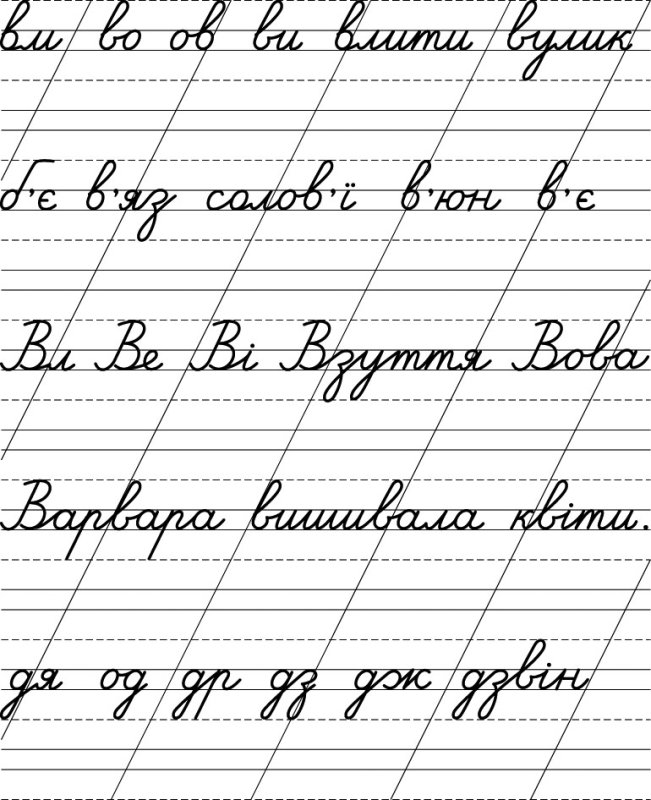 вл во ов ви влити вулик
б'є в'яз солов'ї в'юн в'є
Вл Ве Ві Взуття Вова
Варвара вишивала квіти.
дя од др дз дж дзвін